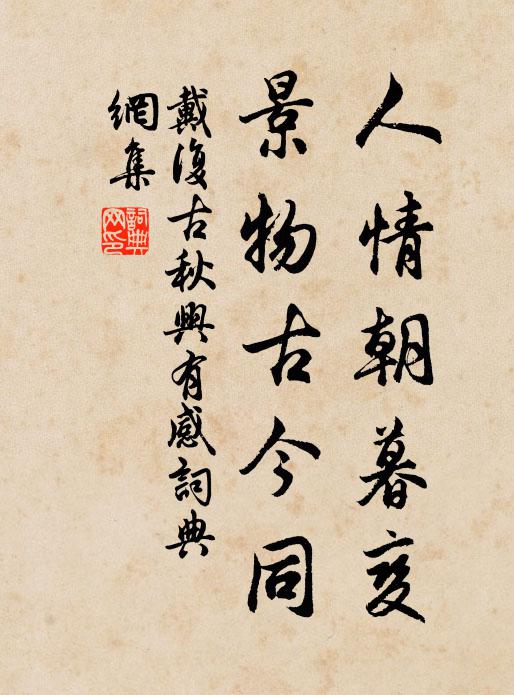 人情朝暮变
景物古今同
戴復古秋興有感詞典
網集
詞典网印